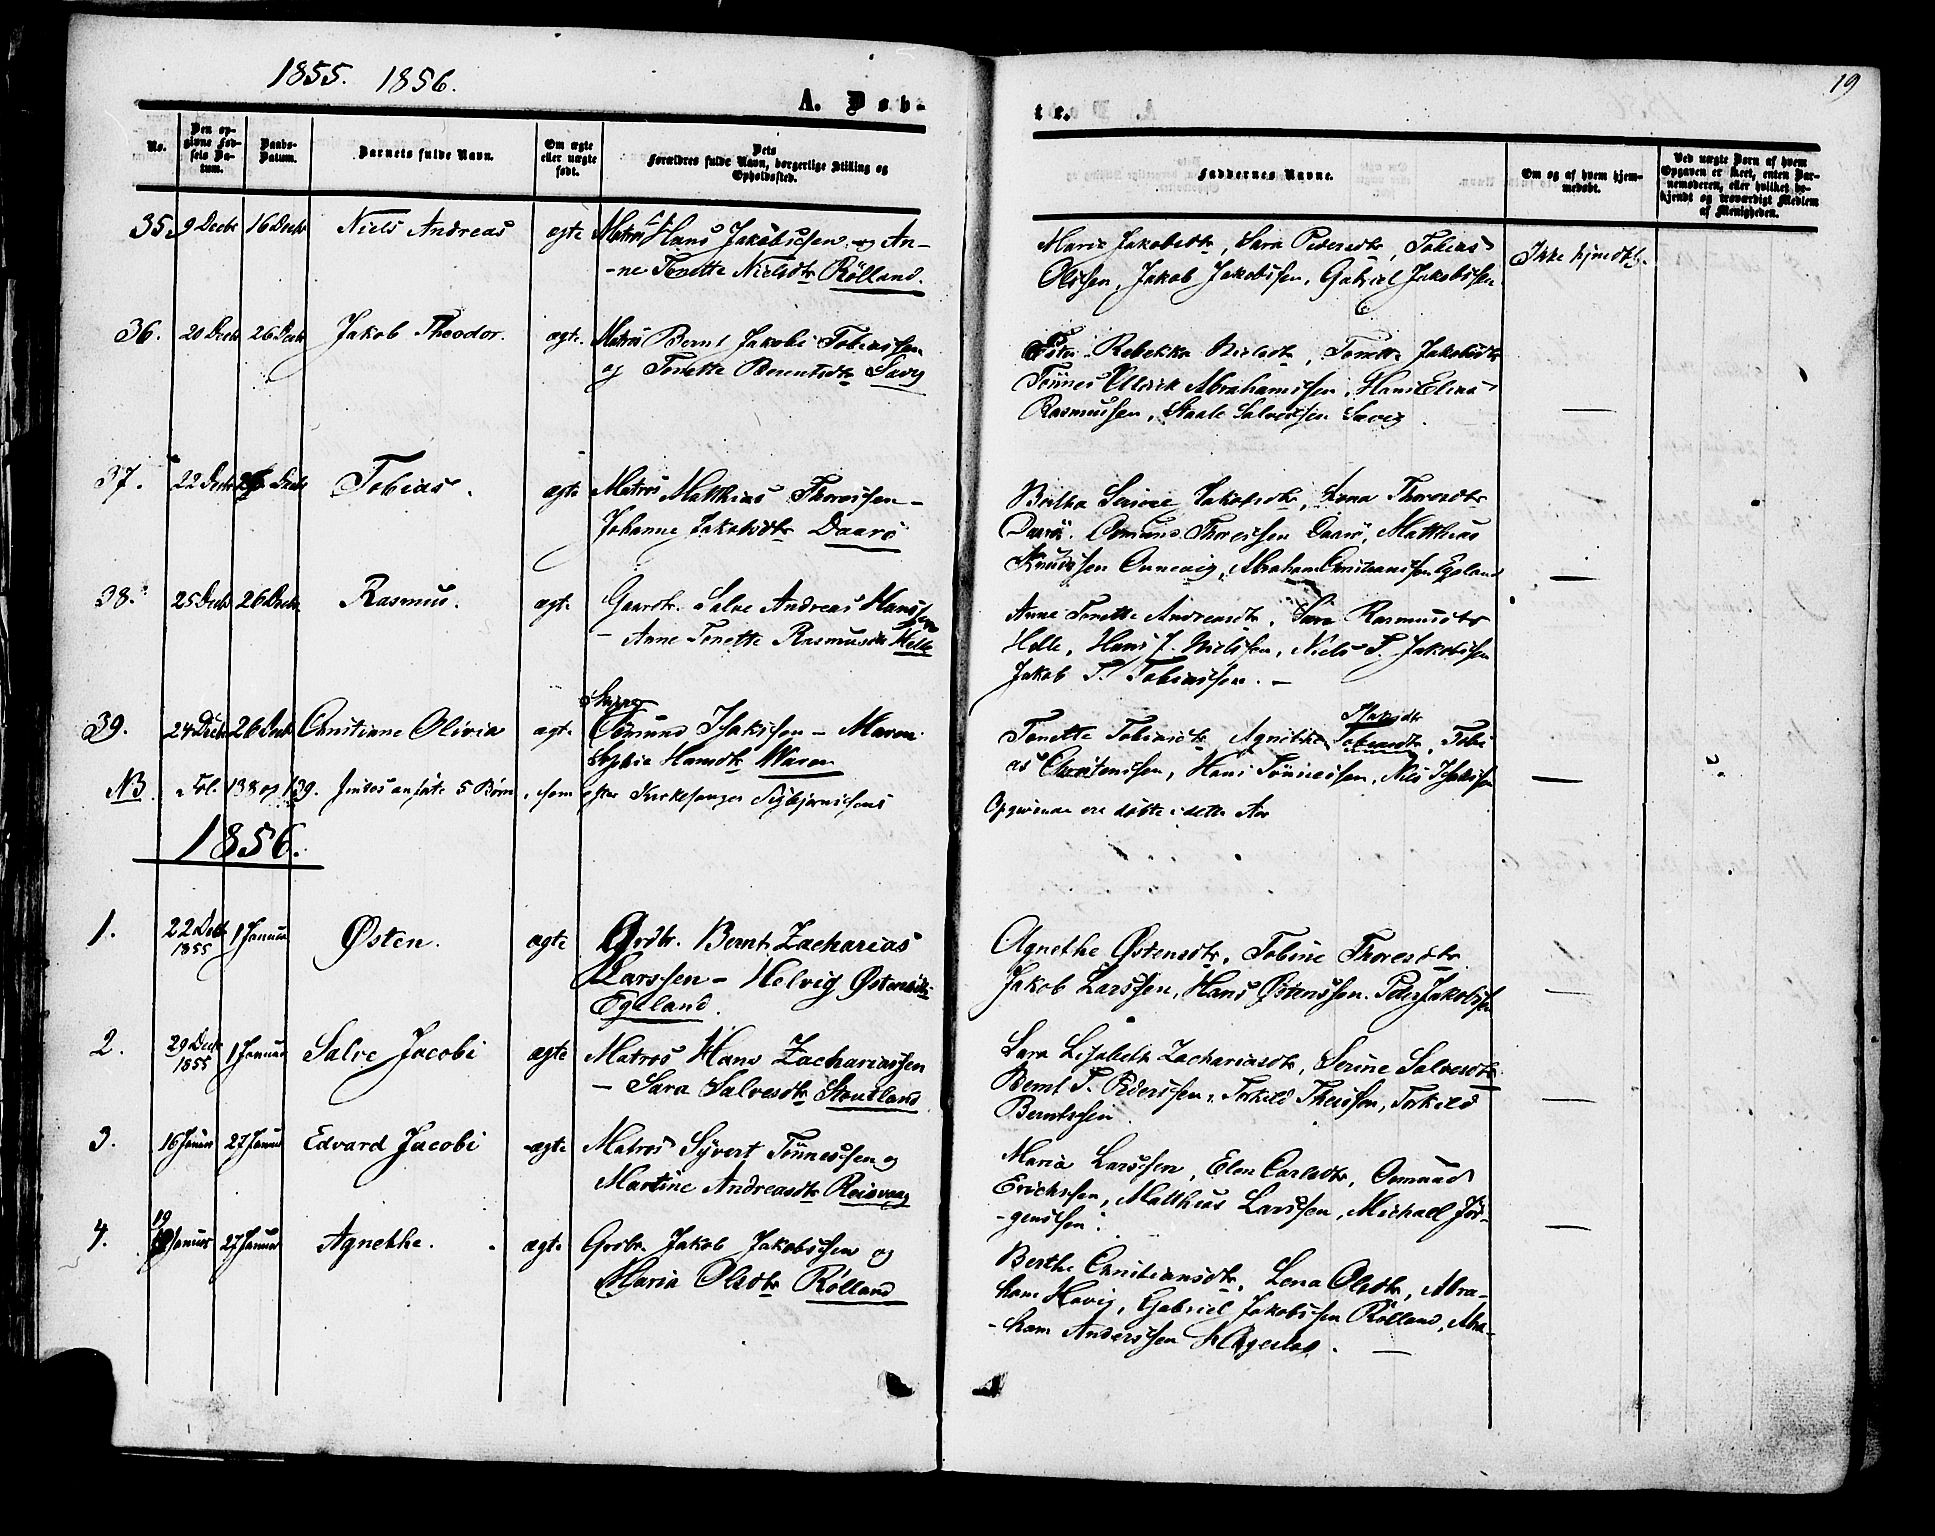 1855. 1856.
19
A. Døb-
te.
No.
Den opgivne Fødsels Datum.
Daabs-Datum.
Barnets fulde Navn.
Om ægte eller uægte født.
Dets Forældres fulde Navn, borgerlige Stilling og Opholdssted.
Faddernes Navne.
Om og af hvem hjemmedøbt.
Ved uægte Børn af hvem Opgaven er skeet, enten Barnemoderen, eller hvilket bekjendt og troværdigt Medlem af Menigheden.
35. 9 Decbr 16 Decbr Niels Andreas ægte Matros Hans Jakobssen og An-
-ne Tonette Nielsdtr Rølland.
Maria Jakobsdtr, Sara Pedersdtr, Tobias
Olssen, Jakob Jakobssen, Gabriel Jakobssen
Ikke hjmdtb.
36. 20 Decbr 26 Decbr Jakob Theodor. ægte. Matros Bernt Jakobi Tobiassen
og Tonette Berentsdtr Savig
Rebekka Nielsdtr, Tonette Jakobsdtr
Tønnes Ullrik Abrahamssen, Hans Elias
Rasmussen, Staale Salvessen Savig.
37. 22 Decbr 26 Decbr Tobias. ægte Matros Matthias Thoressen -
Johanne Jakobsdtr Daarø
Bertha Serine Jakobsdtr, Lena Thoresdtr
Daarø. Osmund Thoressen Daarø, Matthias
Knudssen Onnevig, Abraham Christianssen Egeland
38. 25 Decbr 26 Decbr Rasmus. ægte. Gaardbr. Salve Andreas Hanssen
- Anne Tonette Rasmusdtr Helle
Anne Tonette Andreasdtr, Sara Rasmusdtr
Helle, Hans J. Nielssen, Niels T. Jakobssen
Jakob T. Tobiassen. -
39. 24 Decbr 26 Decbr Christiane Olivia ægte. Osmund Isakssen - Maren
Sophie Hansdtr Waren
Tonette Tobiasdtr, Agnethe Tobiasdtr Isaksdtr, Tobi
as Christenssen, Hans Tønnessen, Nils Isakssen
NB Fol. 138 og 139. findes anførte 5 Børn, som efter Kirkesanger Sigbjørnssens
Opgivende ere døbte i dette Aar
1856.
1. 22 Decbr 1855 1 Januar Østen. ægte Grdbr. Bernt Zacharias
Larssen - Helvig Østensdtr
Egeland.
Agnethe Østensdtr, Tobine Thoresdtr
Jakob Larssen, Hans Østenssen. Peder Jakobssen
2. 29 Decbr 1855 1 Januar Salve Jacobi ægte Matros Hans Zachariassen
- Sara Salvesdtr Stouland
Sara Lisabeth Zachariasdtr, Serine Salvesdtr
Bernt T. Pederssen, Torkild Theissen, Torkild
Berntssen.
3. 16 Januar 27 Januar Edvard Jacobi ægte Matros Syvert Tønnessen og
Martine Andreasdtr Reisvaag
Maria Larssen, Elen Carlsdtr, Osmund
Erichssen, Matthias Larssen, Michael Jør-
-genssen.
4. 19 Januar 27 Januar Agnethe. ægte. Grdbr. Jakob Jakobssen og
Maria Olsdtr Rølland
Berthe Christiansdtr, Lena Olsdtr, Abra-
ham Havig, Gabriel Jakobssen Rølland, Abra-
-ham Anderssen